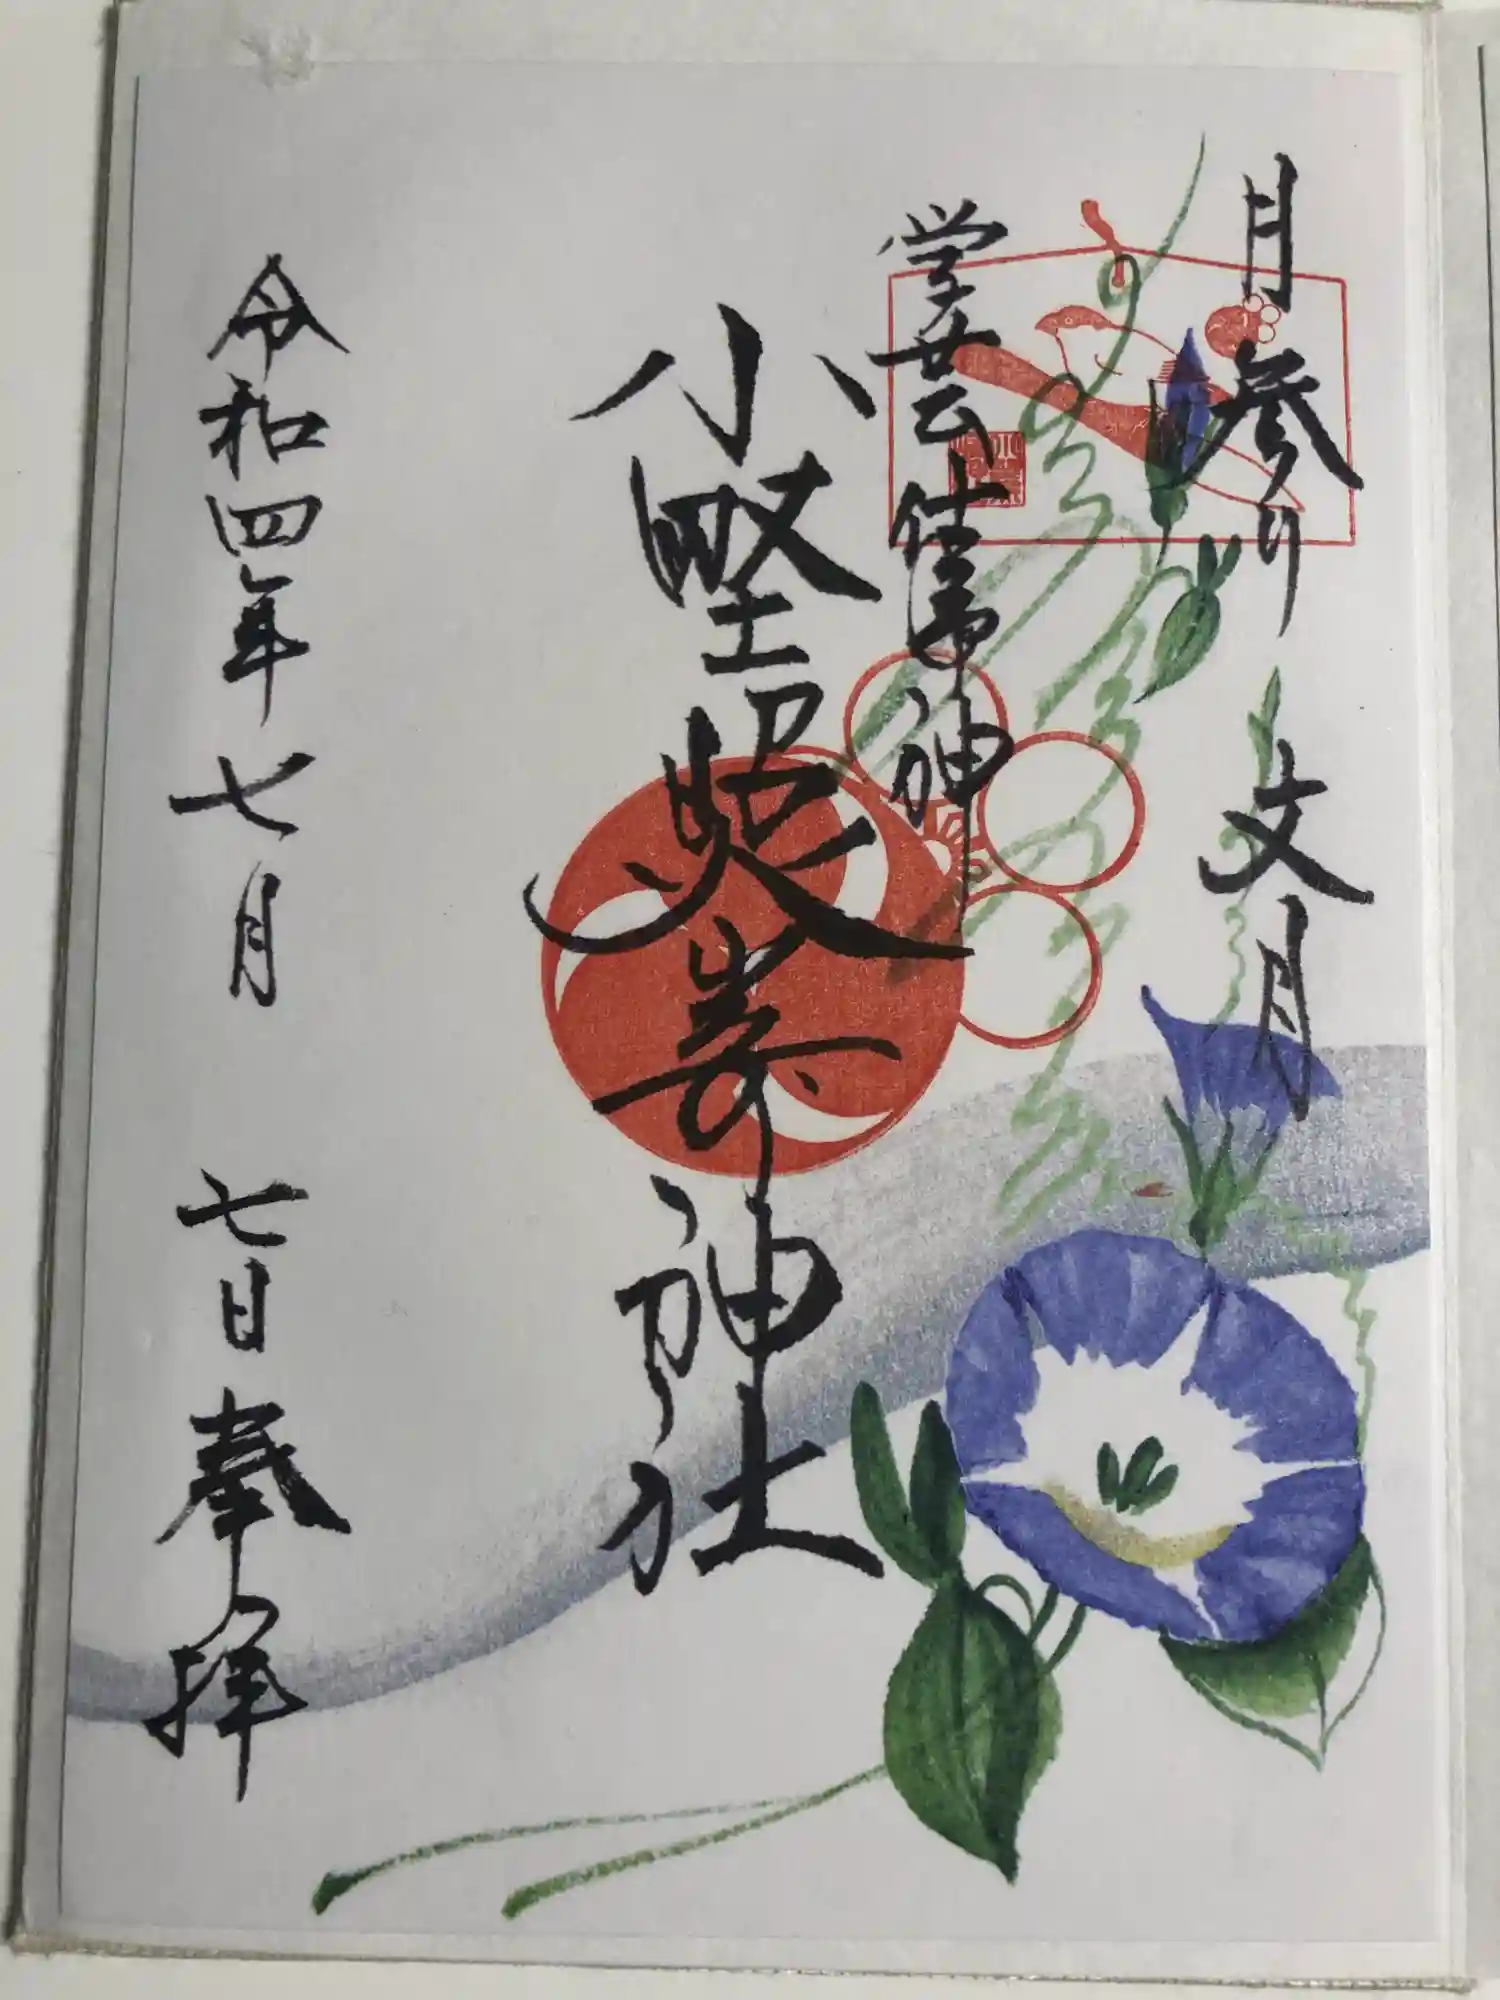 月参り 文月
学芸仕事神
小野照嵜神社
令和四年七月 七日奉拝